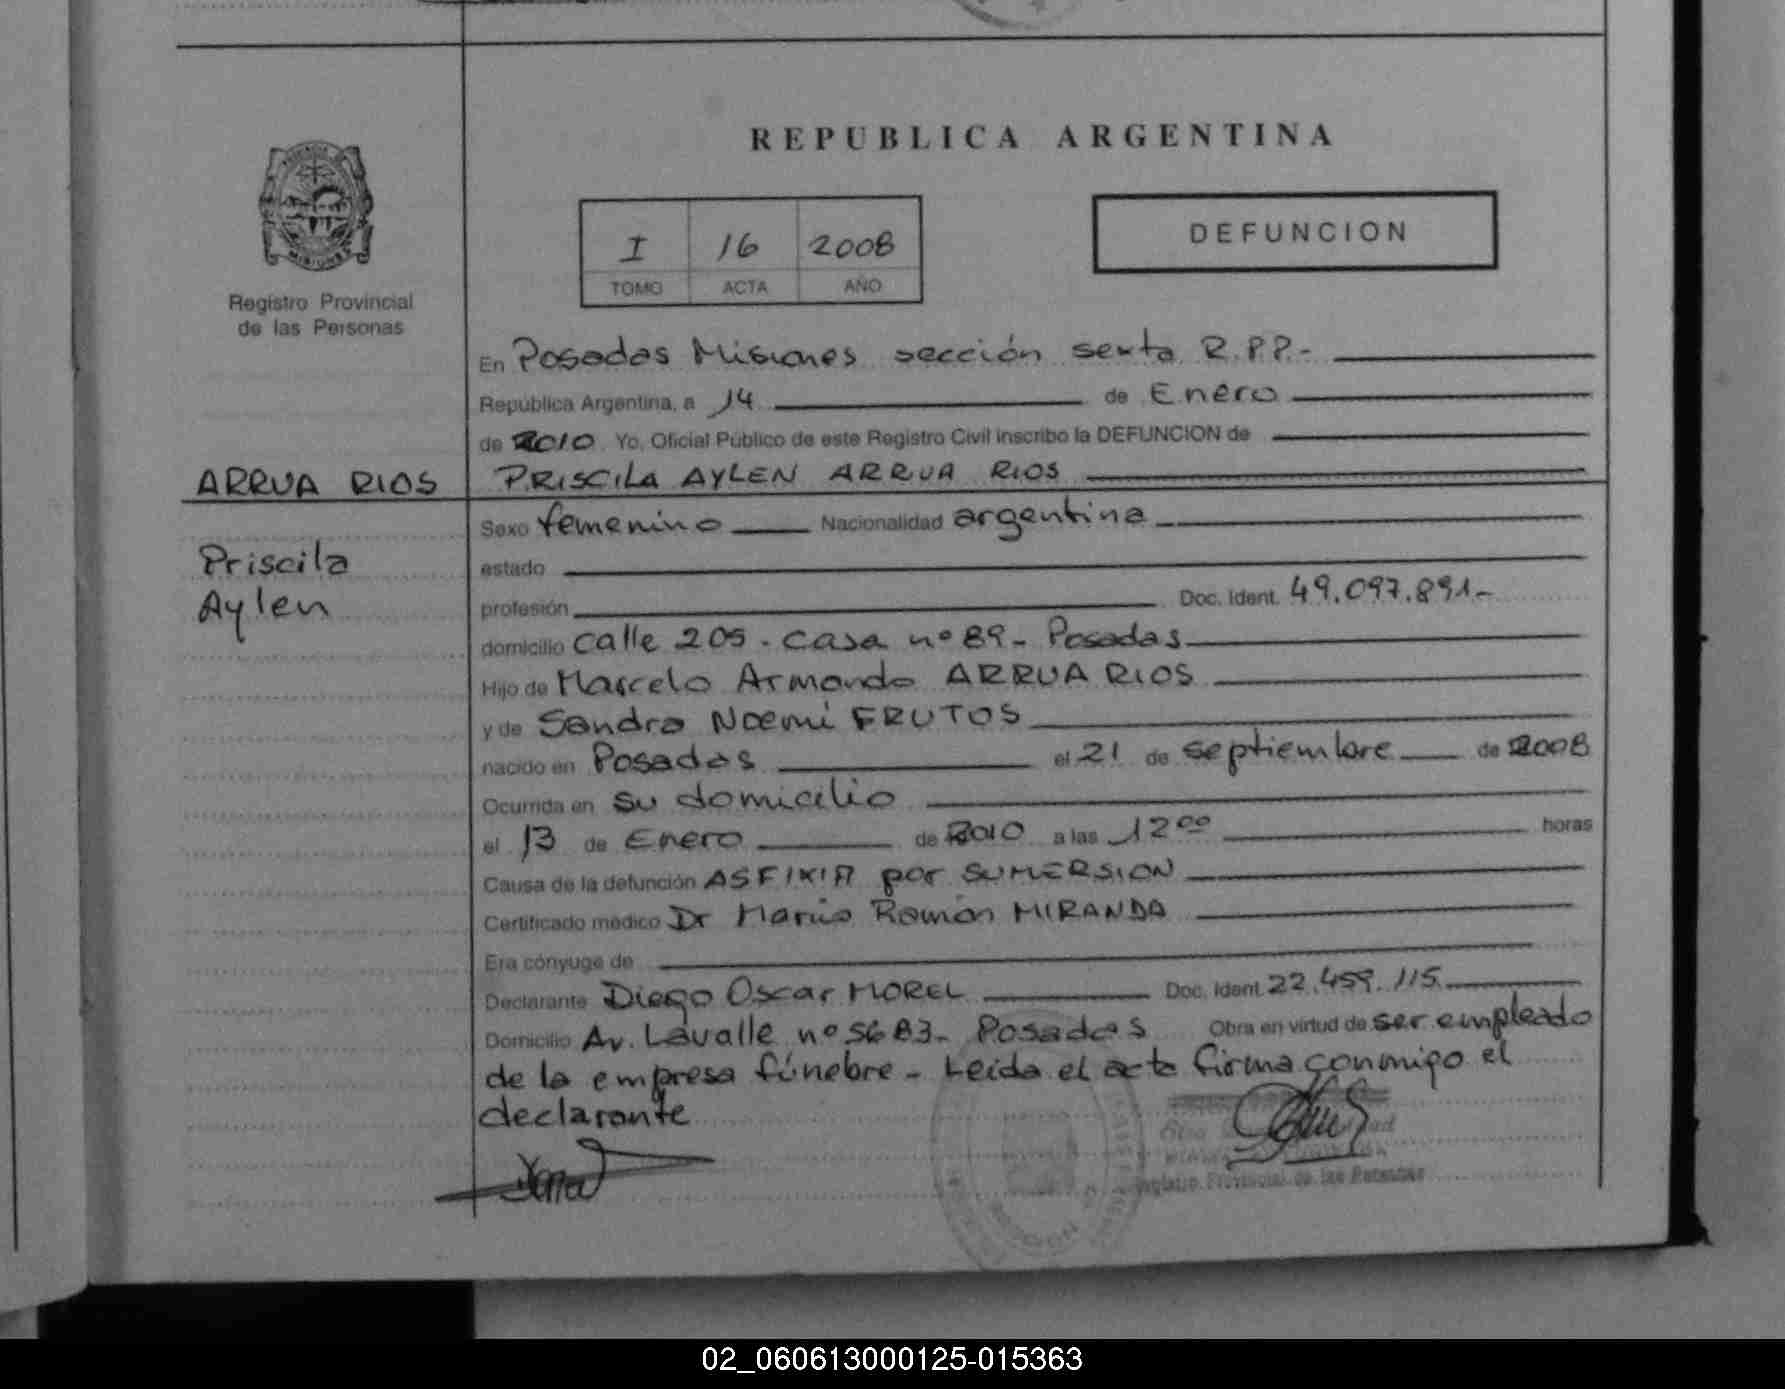 REPUBLICA ARGENTINA
I 16 2008
TOMO ACTA AÑO
DEFUNCION
MISIONES
Registro Provincial
de las Personas
En Posadas Misiones sección sexta R.P.P.-
República Argentina, a 14 de Enero
de 2010. Yo, Oficial Público de este Registro Civil inscribo la DEFUNCION de
ARRUA RIOS PRISCILA AYLEN ARRUA RIOS
Sexo femenino Nacionalidad argentina
Priscila
Aylen
estado
profesión Doc. Ident. 49.097.891-
domicilio calle 205 - casa nº 89 - Posadas
Hijo de Marcelo Armando ARRUA RIOS
y de Sandra Noemi FRUTOS
nacido en Posadas el 21 de septiembre de 2008
Ocurrida en su domicilio
el 13 de Enero de 2010 a las 12 00 horas
Causa de la defunción ASFIXIA por SUMERSION
Certificado médico Dr Mario Ramón MIRANDA
Era cónyuge de
Declarante Diego Oscar MOREL Doc. Ident. 22.459.115
Domicilio Av. Lavalle nº 5683 - Posadas Obra en virtud de ser empleado
de la empresa fúnebre - Leída el acta firma conmigo el
declarante
Registro Provincial de las Personas
02_060613000125-015363